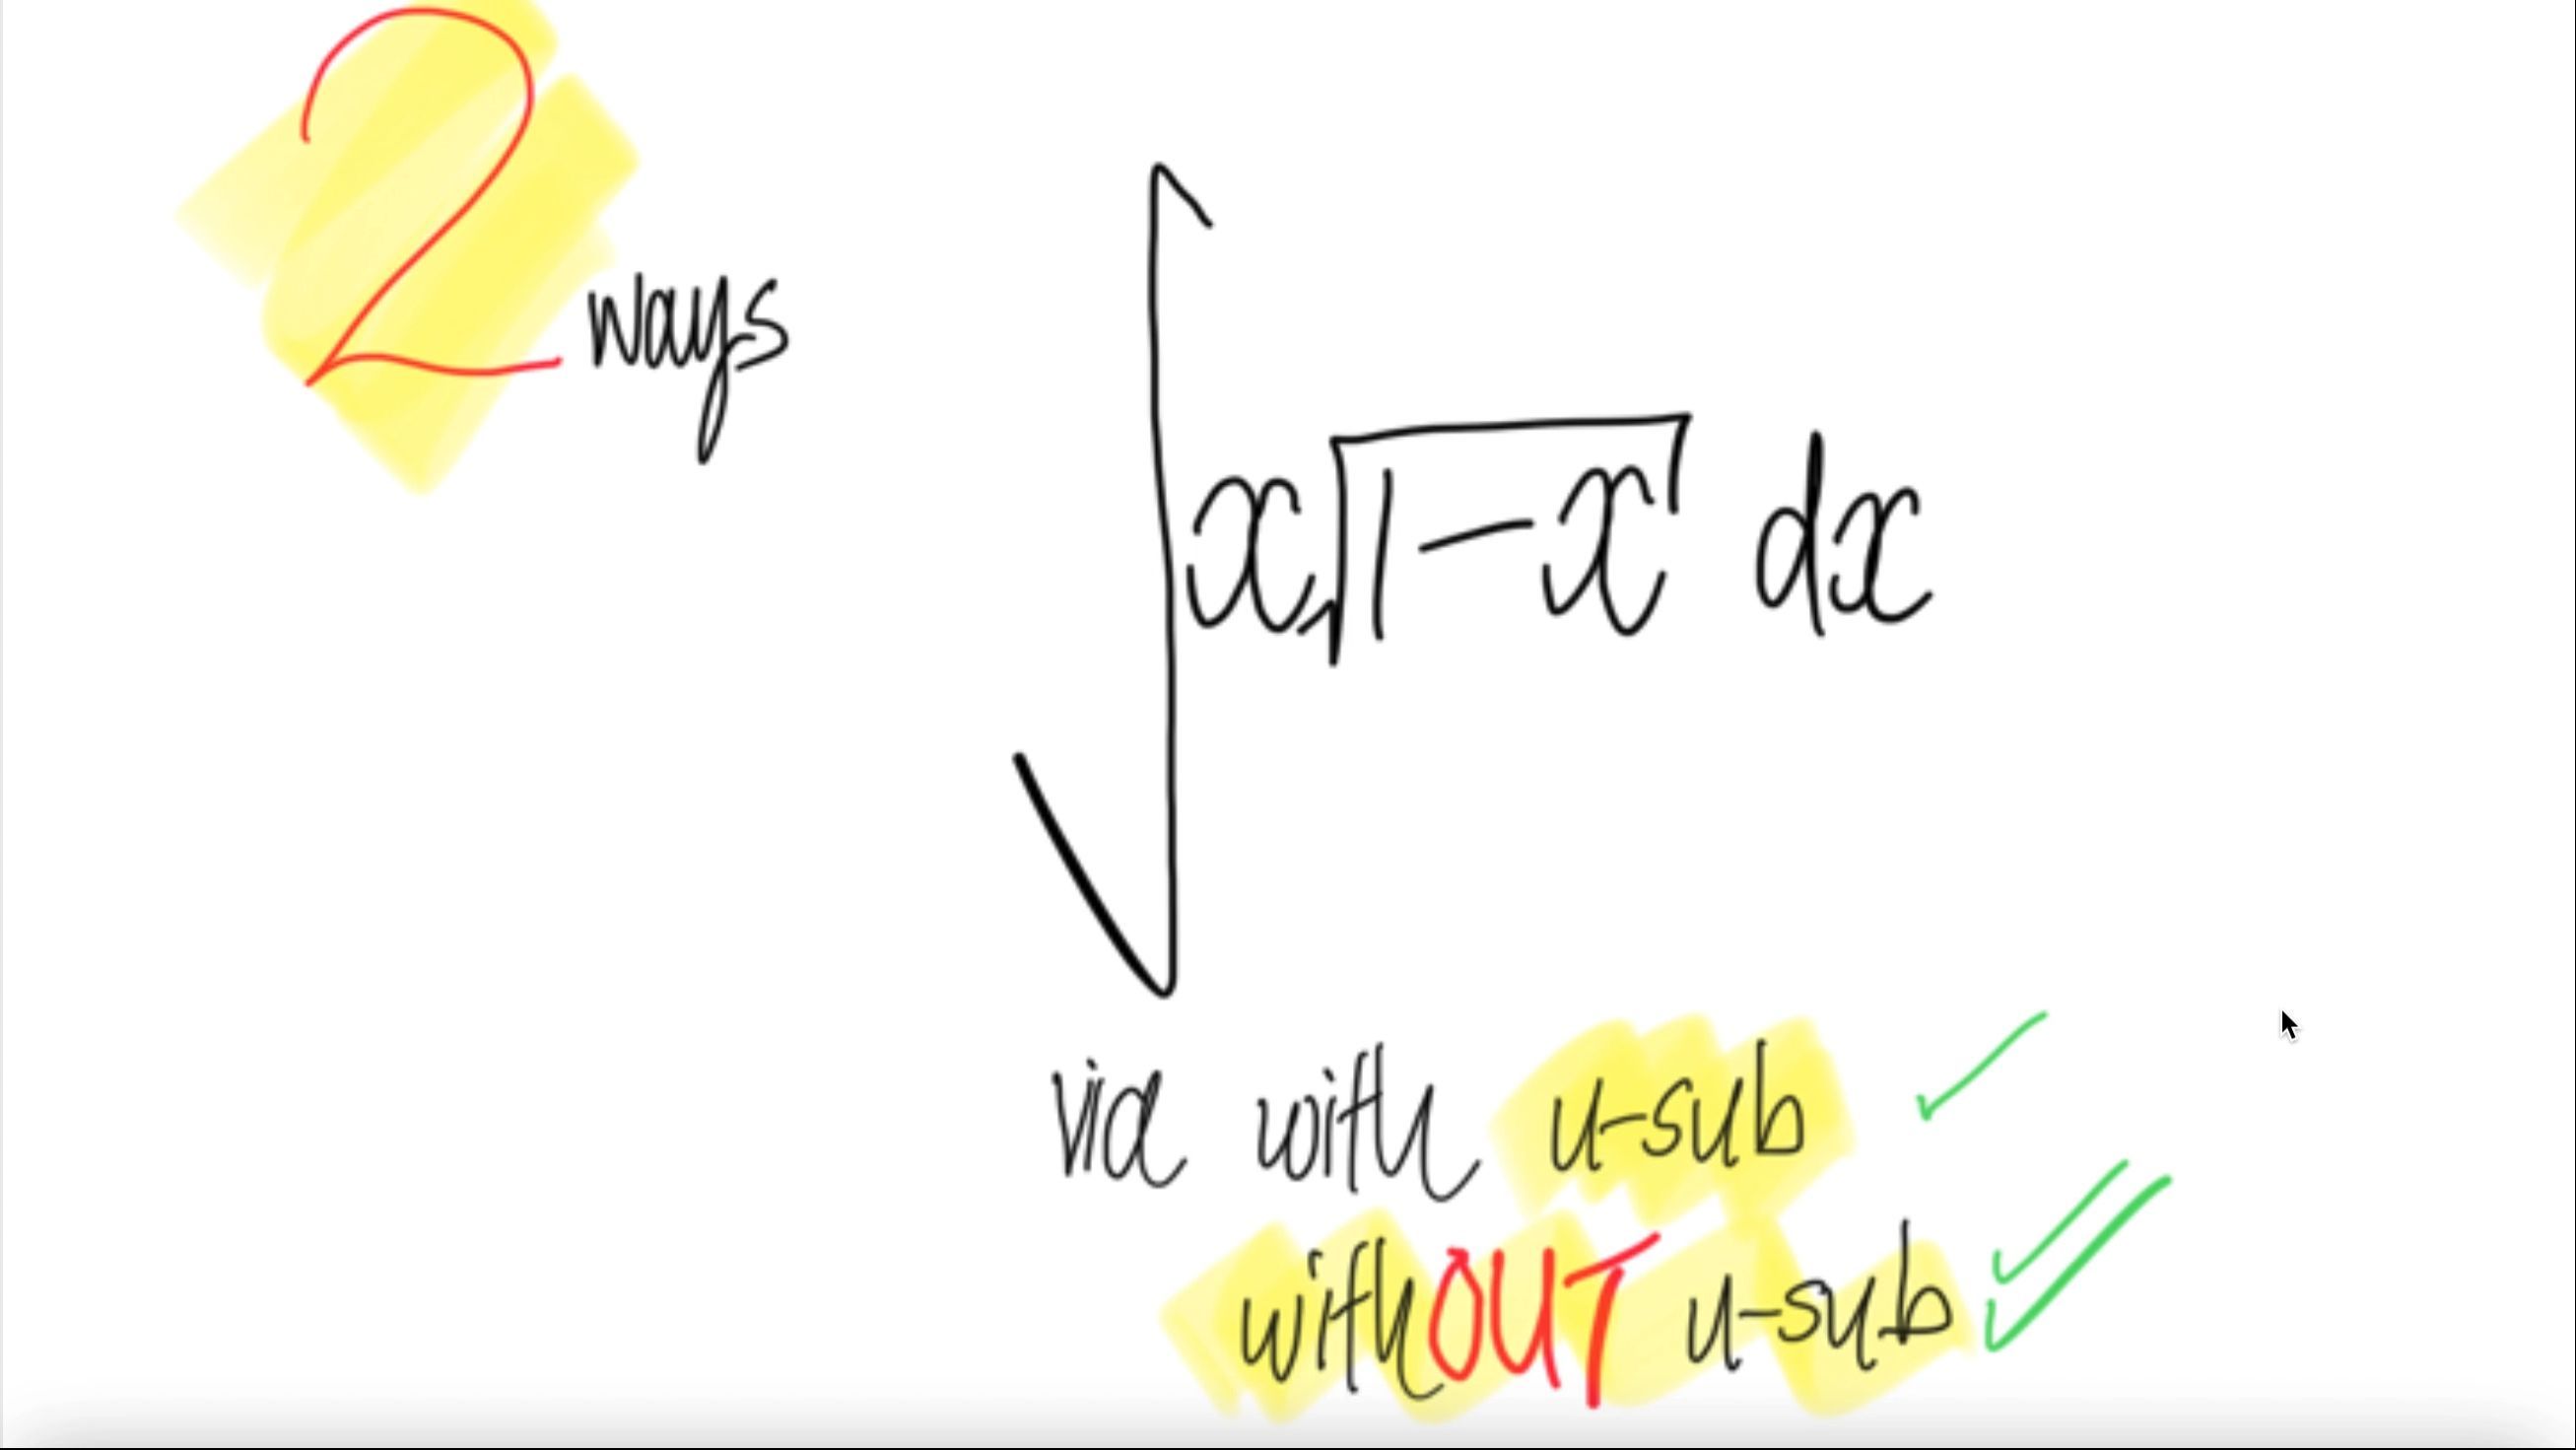 2 ways
∫ x√(1-x) dx
via with u-sub ✓
withOUT u-sub ✓✓